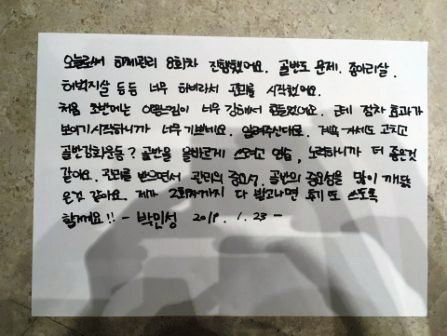 오늘로써 하체관리 8회차 진행했어요. 골반도 문제. 종아리살.
허벅지살 등등 너무 하비라서 관리를 시작했어요.
처음 초반에는 아픔느낌이 너무 강해서 힘들었어요. 근데 점차 효과가
보이기시작하니까 너무 기쁘네요. 알려주신대로. 거꾸 자세도 고치고
골반강화운동? 골반을 올바르게 쓰려고 연습, 노력하니까 더 좋은것
같아요. 관리를 받으면서 관리의 중요성. 골반의 중요성을 많이 깨닳
은것 같아요. 제가 20회차까지 다 받고나면 후기 또 쓰도록
할께요!! - 박민성 2019. 1. 23 -